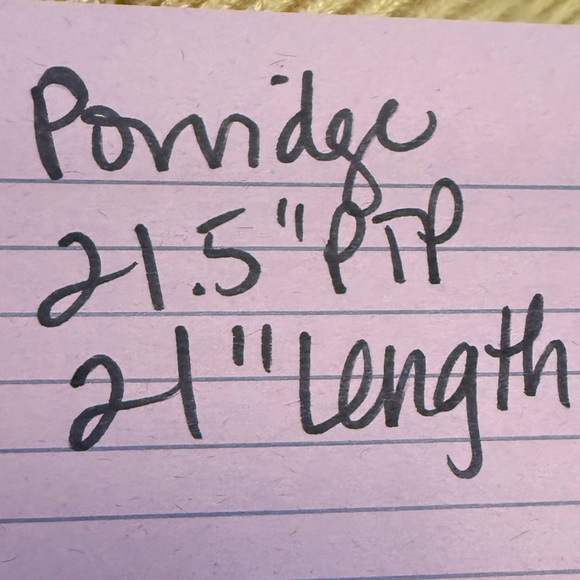 Porridge
21.5" PTP
21" Length